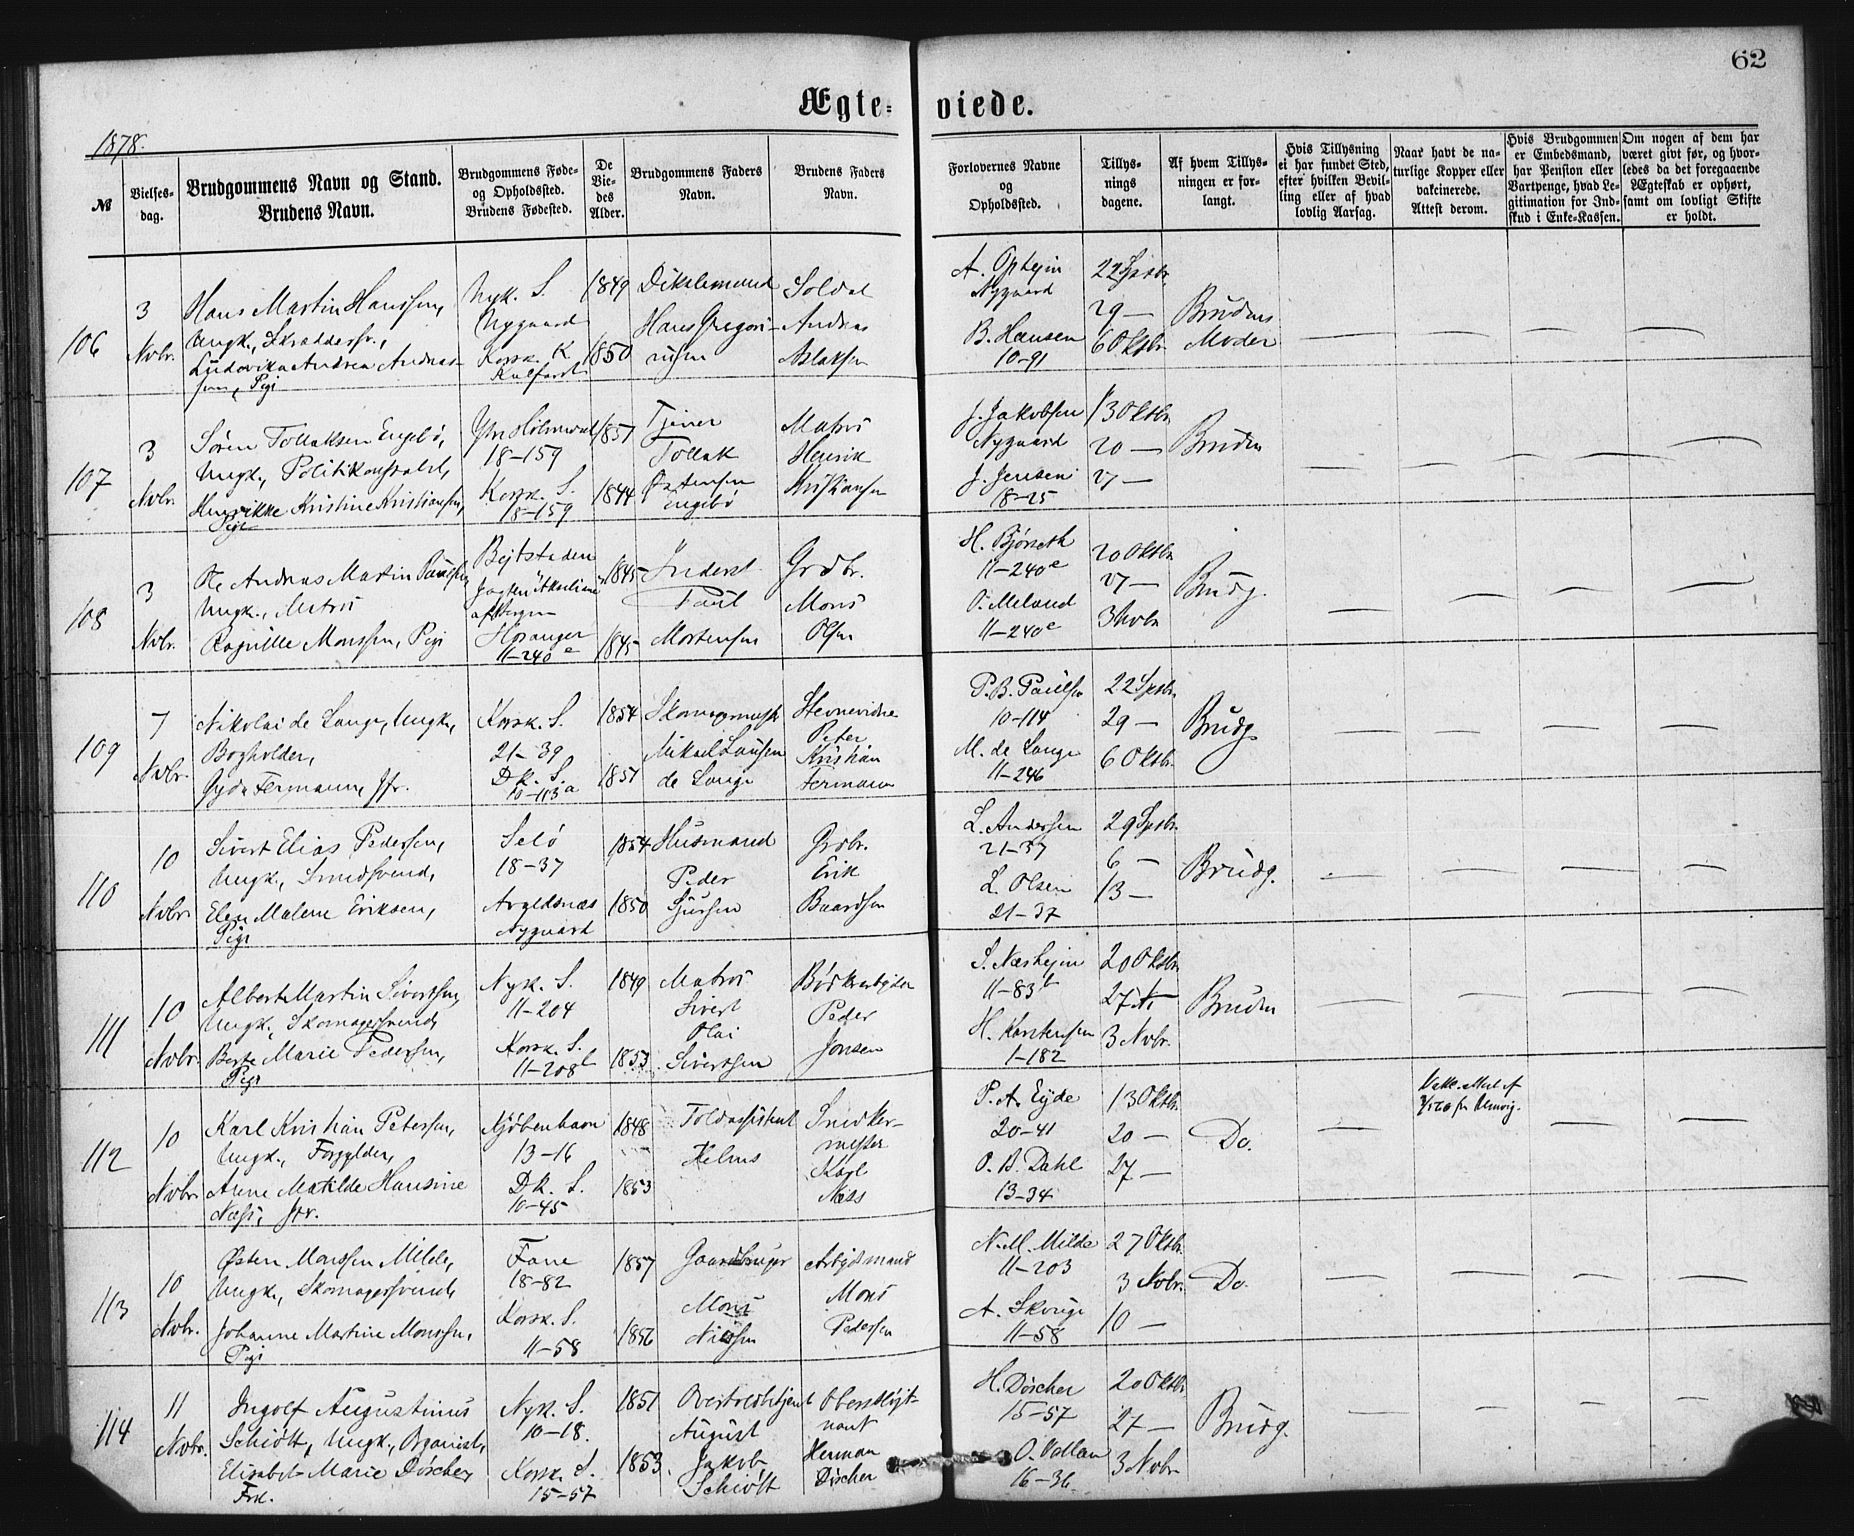 62
Ægte-viede.
1878.
№
Vielses-
dag.
Brudgommens Navn og Stand.
Brudens Navn.
Brudgommens Føde-
og Opholdssted.
Brudens Fødested.
De
Vie-
des
Alder.
Brudgommens Faders
Navn.
Brudens Faders
Navn.
Forlovernes Navne
og
Opholdssted.
Tillys-
nings
dagene.
Af hvem Tillys-
ningen er for-
langt.
Hvis Tillysning
ei har fundet Sted,
efter hvilken Bevil-
ling eller af hvad
lovlig Aarsag.
Naar havt de na-
turlige Kopper eller
vakcinerede.
Attest derom.
Hvis Brudgommen
er Embedsmand,
har Pension eller
Vartpenge, hvad Le-
gitimation for Ind-
skud i Enke-Kassen.
Om nogen af dem har
været givt før, og hvor-
ledes da det foregaaende
Ægteskab er ophørt,
samt om lovligt Skifte
er holdt.
106
3
Nvbr.
Hans Martin Hanssen,
Ungk., Skræddersv.,
Ludovika Andrea Andreas-
sen, Pige
Nyk. S.
Nygaard
Korsk. K.
Kalfaret
1849
1850
Hans Gregori-
ussen
Soldat
Andreas
Aslaksen
A. Optejn
Nygaard
B. Hansen
10-91
22 Sptbr.
29 —
6 Oktbr.
Brudens
Moder
107
3
Nvbr.
Søren Tollaksen Engebø,
Ungk., Politikonstabel,
Henrikke Kristine Kristiansen,
Pige
Ytre Holmedal
18-159
Korsk. S.
18-159
1851
1844
Tjener
Tollak
Østensen
Engebø
Matros
Henrik
Kristiansen
J. Jakobsen
Nygaard
J. Jensen
18-25
13 Oktbr.
20 —
27 —
Bruden
108
3
Nvbr.
Ole Andreas Martin Paulsen
Ungk., Matros
Ragnille Monssen, Pige
Bejtstaden
af Bergen
Hosanger
11-240 e
1845
1845
Inderst
Paul
Mortensen
Grdbr.
Mons
Olsen
H. Bjørseth
11-240 e
O. Meland
11-240 e
20 Oktbr.
27 —
3 Nvbr.
Brudg.
109
7
Nvbr.
Nikolai de Lange, Ungk.,
Bogholder,
Gyda Fermann, Jfr.
Korsk. S.
21-39
Dk. S.
10-113 a
1854
1851
Skomagermester
Mikael Lausen
de Lange
Stevnevidne
Peter
Kristian
Fermann
P. B. Paulsen
10-114
M. de Lange
11-246
22 Sptbr.
29 —
6 Oktbr.
Brudg.
110
10
Nvbr.
Sivert Elias Pedersen,
Ungk., Smedsvend,
Elen Malene Eriksen,
Pige
Selø
18-37
Avaldsnæs
Nygaard
1854
1850
Husmand
Peder
Sjursen
Grdbr.
Erik
Baardsen
L. Andersen
21-37
L. Olsen
21-37
29 Sptbr.
6 —
13 —
Brudg.
111
10
Nvbr.
Albert Martin Sivertsen,
Ungk., Skomagersvend,
Berte Marie Pedersen,
Pige
Nyk. S.
11-204
Korsk. S.
11-208 b
1849
1853
Matros
Sivert
Olai
Sivertsen
Bødkerarbejder
Peder
Jonsen
S. Næshejm
11-83 b
H. Karstensen
1-182
20 Oktbr.
27 —
3 Nvbr.
Bruden
112
10
Nvbr.
Karl Kristian Petersen,
Ungk., Forgylder,
Anne Matilde Hansine
Næss, Jfr.
Kjøbenhavn
13-16
Dk. S.
10-45
1848
1853
Toldassistent
Helms
Snedker-
mester
Karl
Næss
P. A. Eyde
20-41
O. B. Dahl
13-34
13 Oktbr.
20 —
27 —
Do.
113
10
Nvbr.
Østen Monssen Milde,
Ungk., Skomagersvend,
Johanne Martine Monssen,
Pige
Fane
18-82
Korsk. S.
11-58
1857
1856
Gaardbruger
Mons
Nilssen
Arbejdsmand
Mons
Pedersen
N. M. Milde
11-203
A. Skouge
11-58
27 Oktbr.
3 Nvbr.
10 —
Do.
114
11
Nvbr.
Ingolf Augustinus
Schiøtt, Ungk., Organist,
Elisabet Marie Døscher,
Frk.
Nyk. S.
10-18.
Korsk. S.
15-57
1851
1853
Overtoldbetjent
August
Jakob
Schiøtt
Oberstløjt-
nant
Herman
Døscher
H. Døscher
15-57
O. Vollan
16-36
20 Oktbr.
27 —
3 Nvbr.
Brudg.